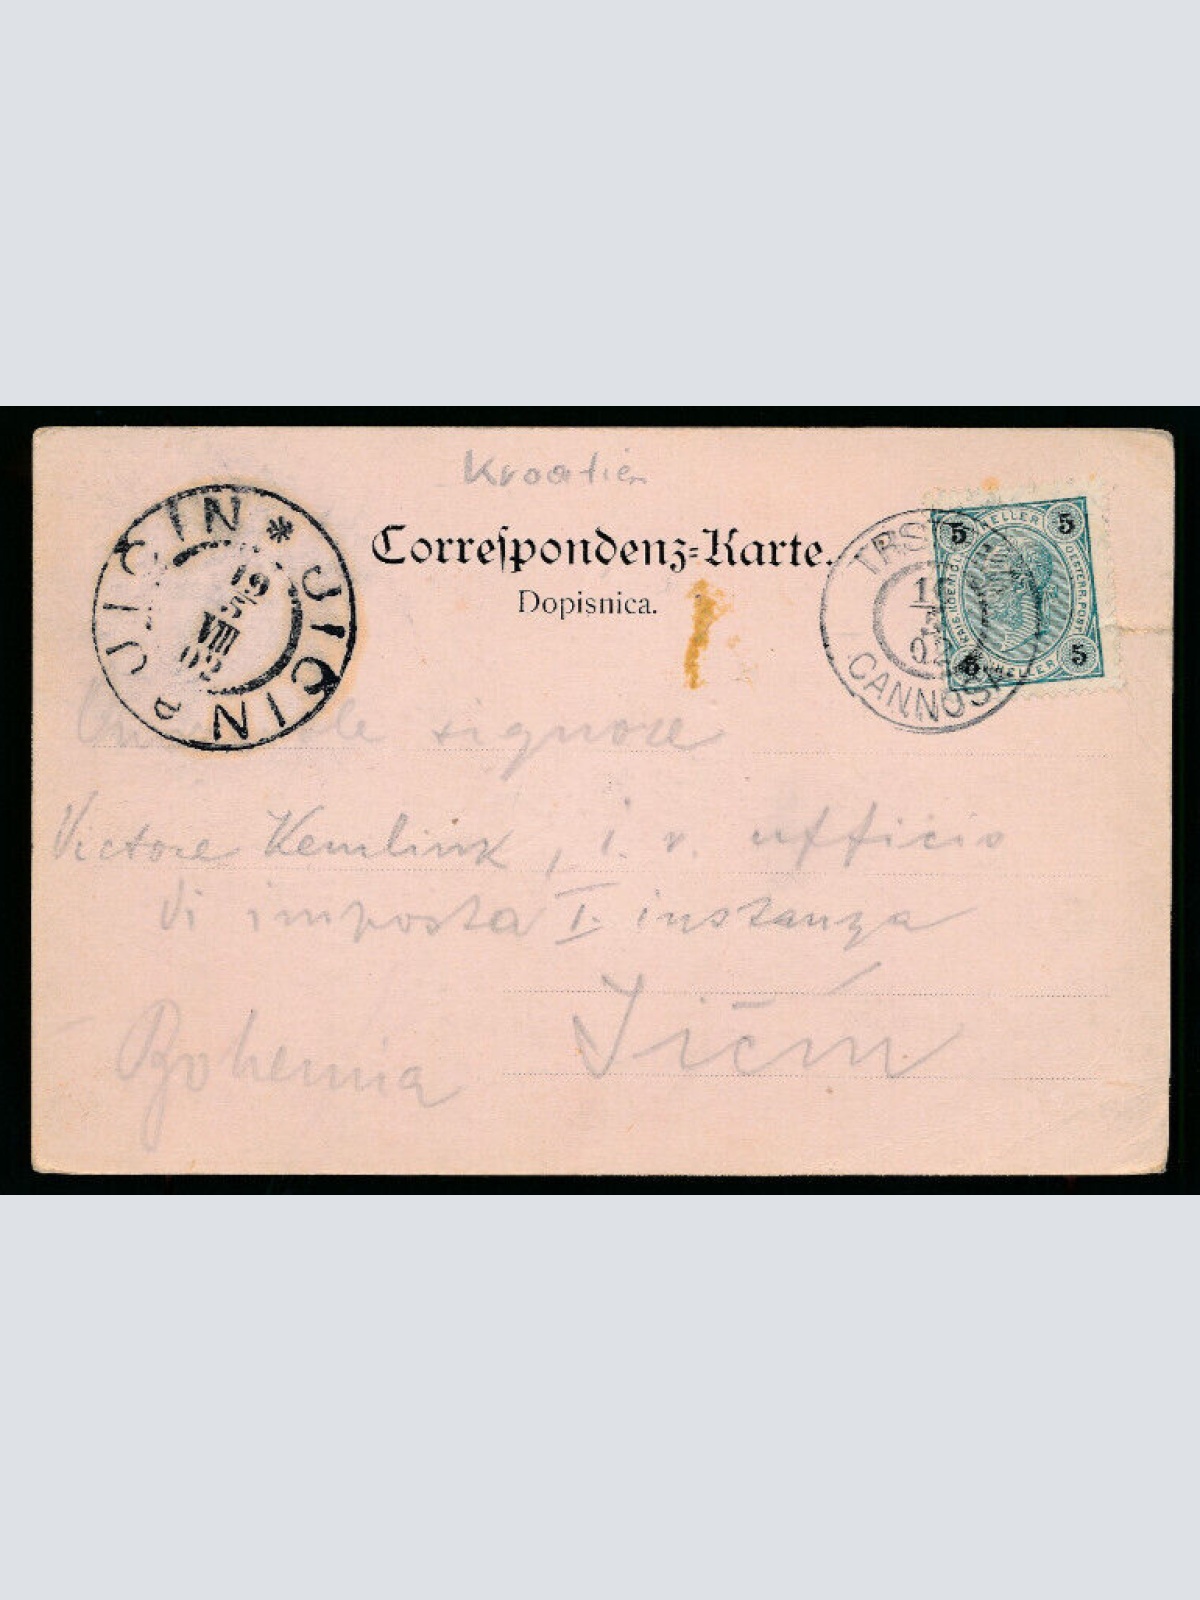 Kroatien
Correspondenz=Karte.
Dopisnica.
JIČIN * JIČIN
TRS
CANNOSA
02
5 HELLER 5
KAIS. KOENIGL. OESTERR. POST
5 HELLER 5
signore
Victore Kemlink, i. r. ufficio
di imposta I. instanza
Jičín
Bohemia